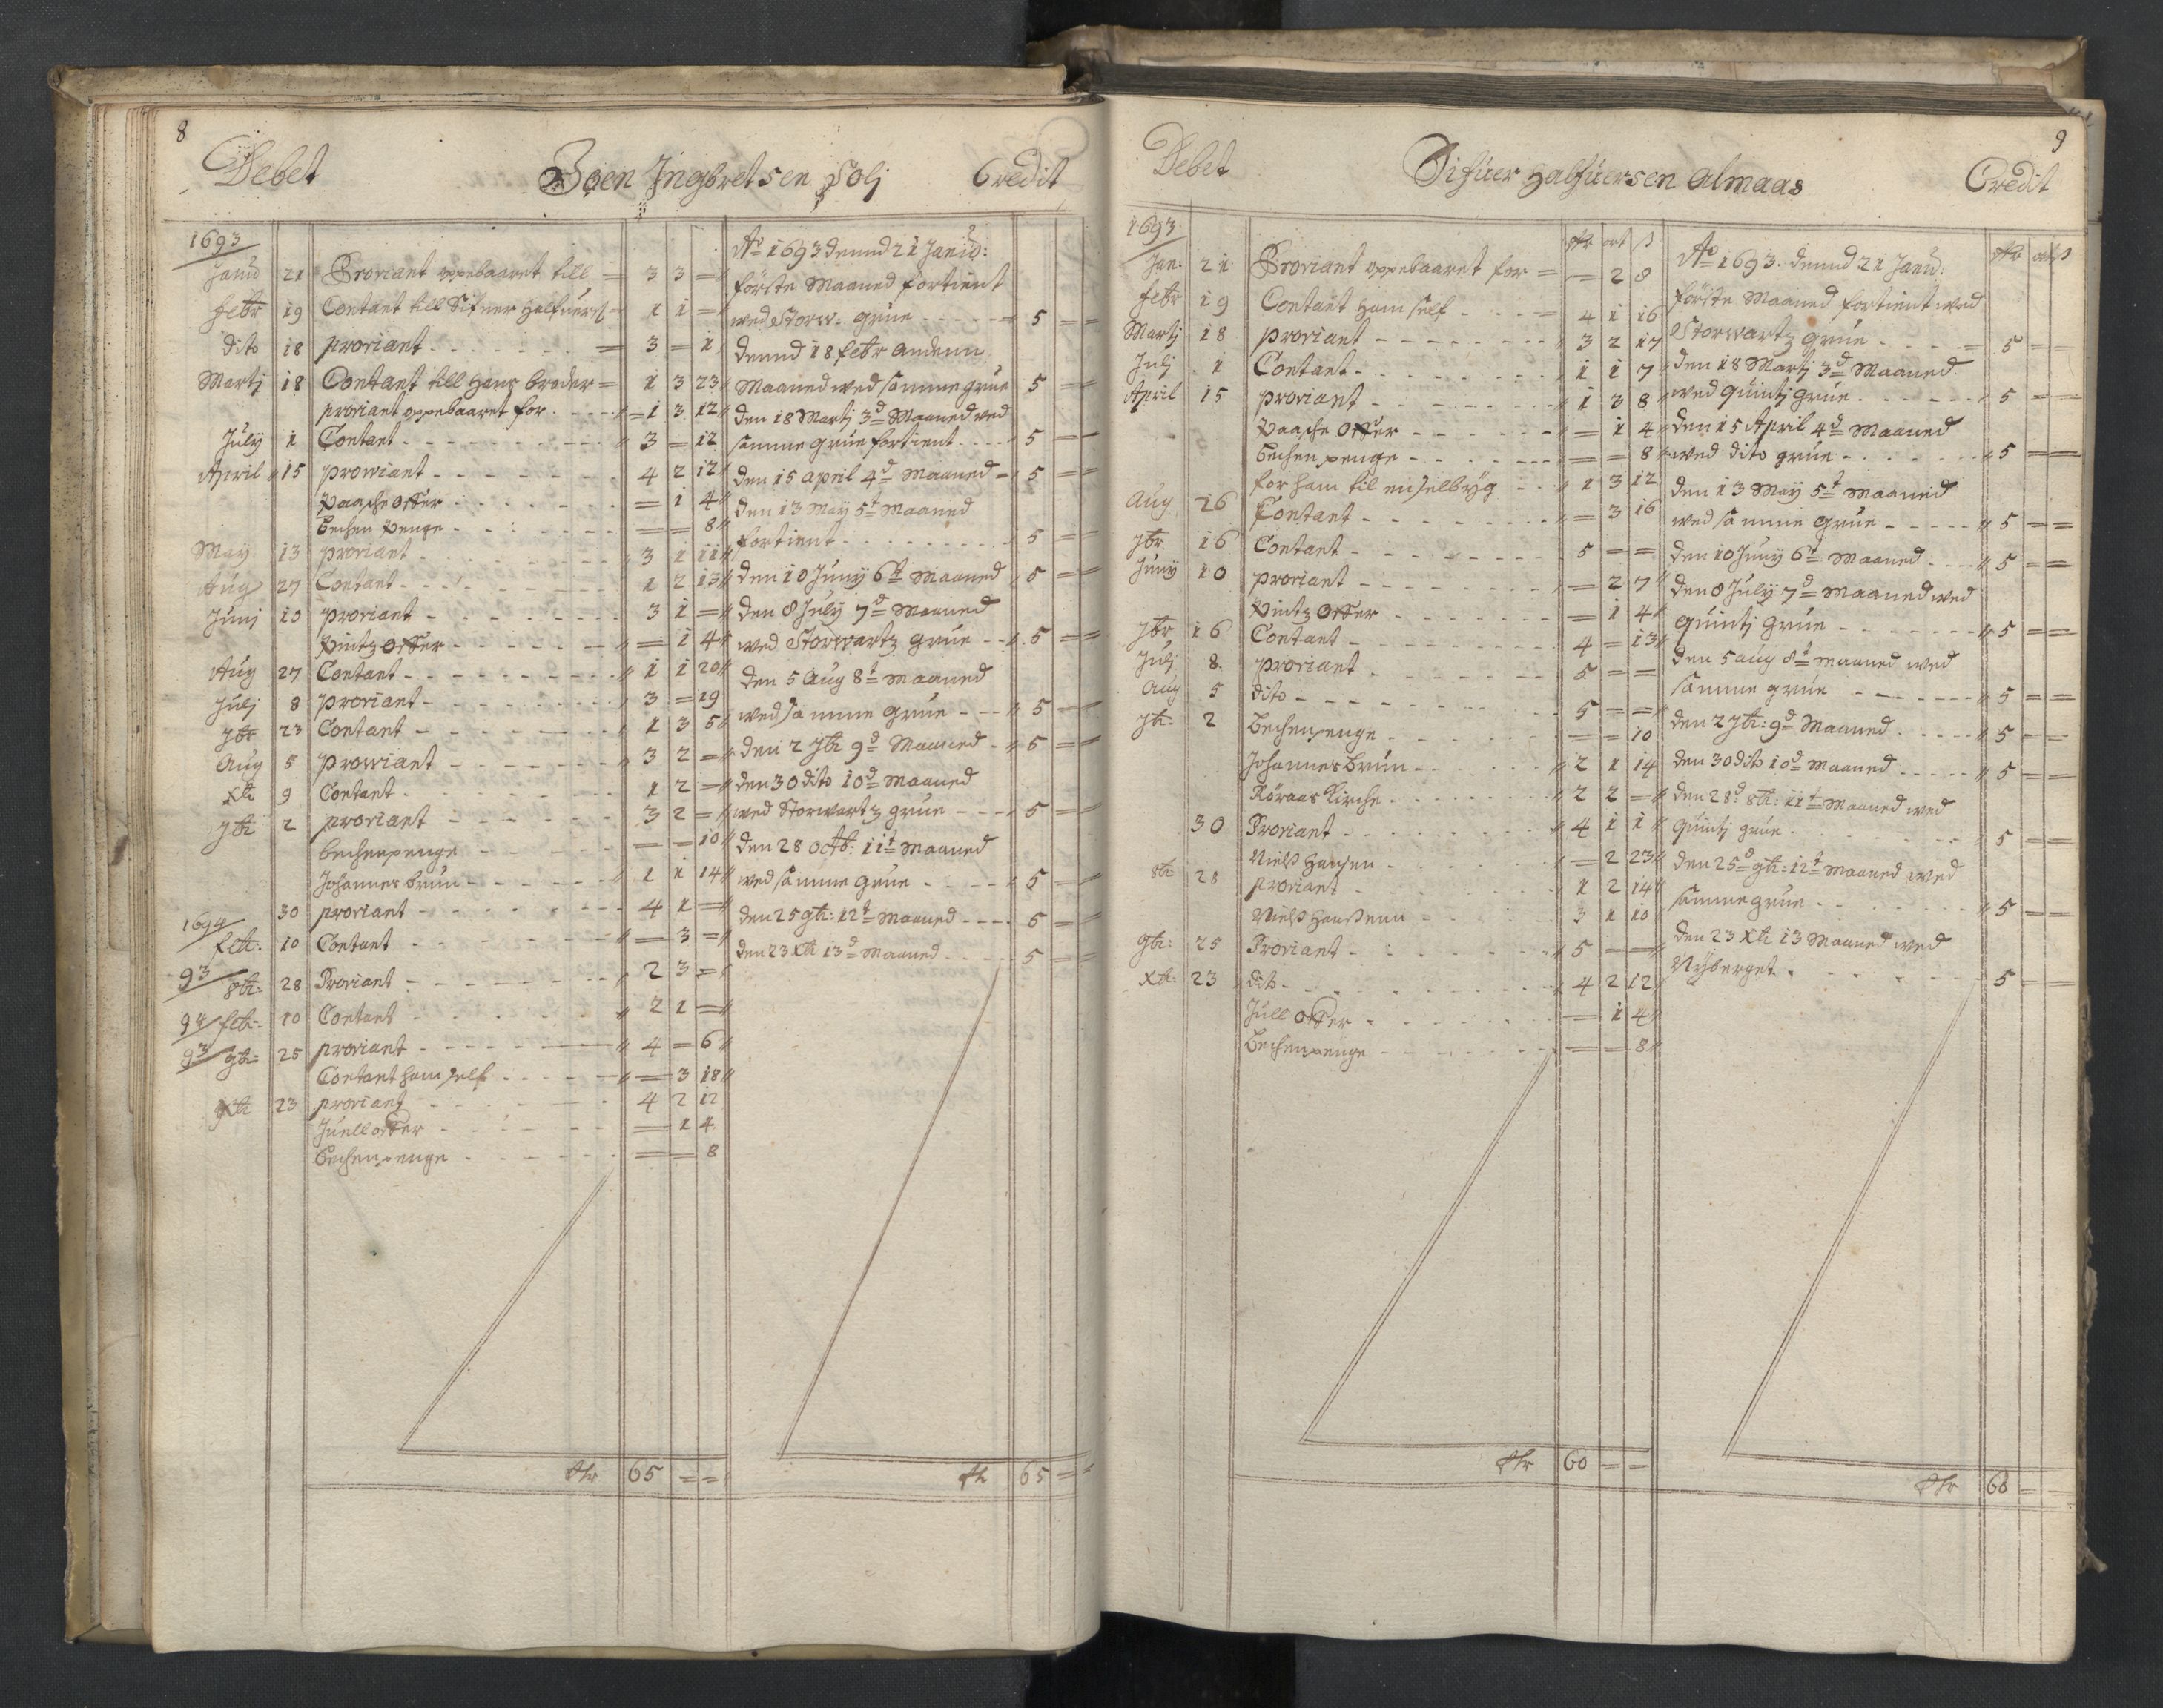 8
Debet Joen Ingbretsen Solj Credit
1693
Janu 21 Proviant oppebaaret till = 3 3 =
febr 19 Contant till Sifuer Halfuers = 1 1 =
dito 18 proviant = 3 = 1
Martj 18 Contant till Hans broder = 1 3 23
proviant oppebaaret for 1 3 12
Julij 1 Contant 3 = 12
April 15 prowiant 4 2 12
Paasche offer = 1 4
Bechen penge = = 8
May 13 proviant 3 1 11
Aug 27 Contant 1 2 13
Junj 10 proviant 3 1 =
Pintz offer = 1 4
Aug 27 Contant 1 1 20
Julj 8 proviant 3 = 19
7br 23 Contant 1 3 5
Aug 5 prowiant 3 2 =
Xbr 9 Contant 1 2 =
7br 2 proviant 3 2 =
bechenpenge = = 10
Johannes brun 1 1 14
30 proviant 4 1 =
1694
febr: 10 Contant = 3 =
93 8br: 28 Proviant 2 3 =
94 febr: 10 Contant 2 1 =
93 9br= 25 proviant 4 = 6
Contant ham self = 3 18
Xbr 23 proviant 4 2 12
Juell offer = 1 4
bechenpenge = = 8
Rdr 65 = =
Ao 1693 dennd 21 Janu:
förste Maaned fortient
wed Storw: grue 5 = =
dennd 18 febr Andenn
Maaned wed samme grue 5 = =
den 18 Martj 3d Maaned wed
samme grue fortient 5 = =
den 15 april 4d Maaned 5 = =
den 13 May 5t Maaned
fortient 5 = =
den 10 Junij 6t Maaned 5 = =
den 8 Julij 7d Maaned
wed Storwartz grue 5 = =
den 5 Aug 8t Maaned
wed samme grue 5 = =
den 2 7br 9d Maaned 5 = =
den 30 dito 10d Maaned
wed Storwartz grue 5 = =
den 28 octb: 11t Maaned
wed samme grue 5 = =
den 25 9br: 12t Maaned 5 = =
den 23 Xbr 13d Maaned 5 = =
Rdr 65 = =
9
Debet Sifuer Halfuersen Almaas Credit
1693
Rdr ort ß
Jan: 21 Proviant oppebaaret for = = 2 8
febr 19 Contant ham self 4 1 16
Martj 18 proviant 3 2 17
Julj 1 Contant 1 1 7
April 15 proviant 1 3 8
Paasche offer = 1 4
bechen penge = = 8
for ham til en selbyg 1 3 12
Aug 26 Contant = 3 16
7br 16 Contant 5 = =
Junij 10 proviant = 2 7
Pintz offer = 1 4
7br 16 Contant 4 = 13
Julj 8 proviant 5 = =
Aug 5 dito 5 = =
7br: 2 Bechenpenge = = 10
Johannes brun 2 1 14
Röraas Kirche 2 2 =
30 Proviant 4 1 1
Nielß Hansen = 2 23
8br 28 proviant 1 2 14
Nielß Hanßenn 3 1 10
9br: 25 Proviant 5 = =
Xbr: 23 dito 4 2 12
Jull offer = 1 4
Bechenpenge = = 8
Rdr 60 = =
Rdr ort ß
Ao 1693. dennd 21 Janu:
förste Maaned fortient wed
Storwartz grue 5 = =
den 18 Martj 3d Maaned
wed Quintj grue 5 = =
den 15 April 4d Maaned
wed dito grue 5 = =
den 13 May 5t Maaned
wed samme grue 5 = =
den 10 Junij 6t Maaned 5 = =
den 8 Julij 7d Maaned wed
Quintj grue 5 = =
den 5 aug 8t Maaned wed
samme grue 5 = =
den 2 7br: 9d Maaned 5 = =
den 30 dito 10d Maaned 5 = =
den 28d 8br: 11t Maaned wed
Quintj grue 5 = =
den 25d 9br: 12t Maaned wed
samme grue 5 = =
den 23 Xbr 13 Maaned wed
Nyberget 5 = =
Rdr 60 = =